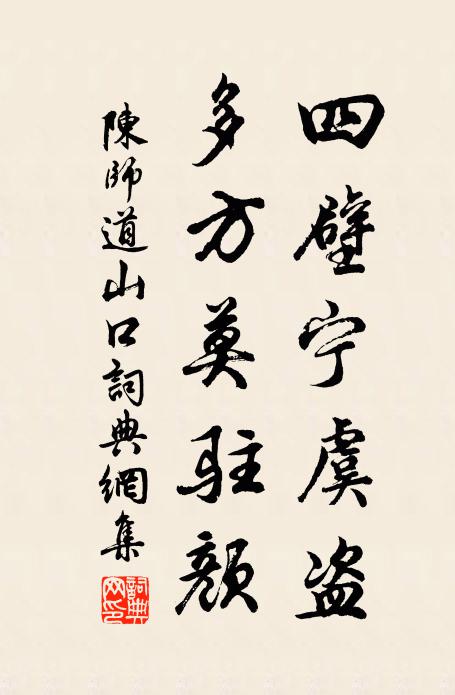 四壁宁虞盗
多方莫驻颜
陳師道山口詞典網集
詞典網印